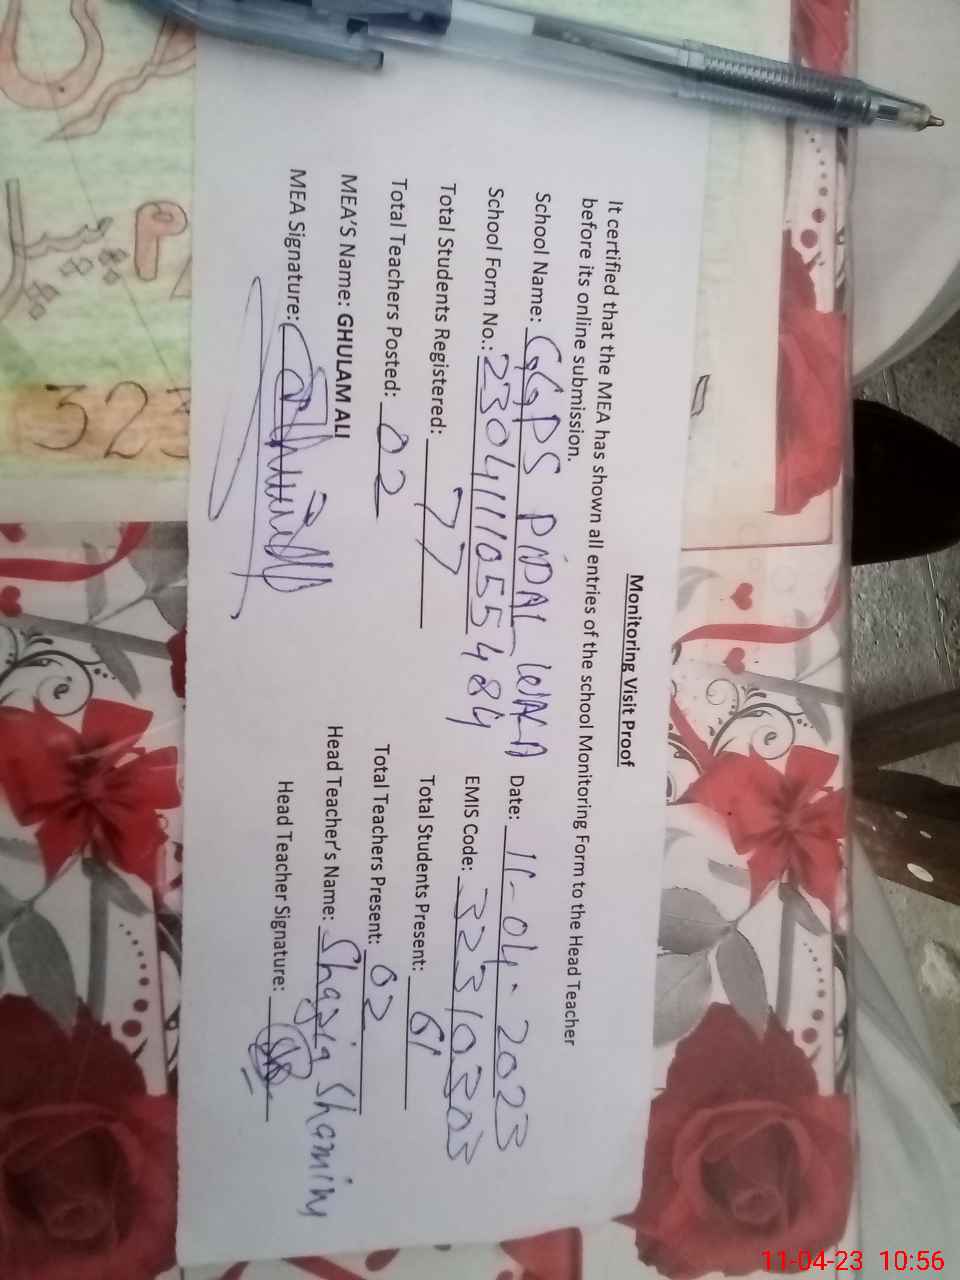 Monitoring Visit Proof
It certified that the MEA has shown all entries of the school Monitoring Form to the Head Teacher
before its online submission.
School Name: GGPS PIPAL WALA Date: 11-04-2023
School Form No.: 23041110555484 EMIS Code: 32310303
Total Students Registered: 77 Total Students Present: 61
Total Teachers Posted: 02 Total Teachers Present: 02
MEA'S Name: GHULAM ALI Head Teacher's Name: Shazia Shamim
MEA Signature: Head Teacher Signature:
323
11-04-23 10:56